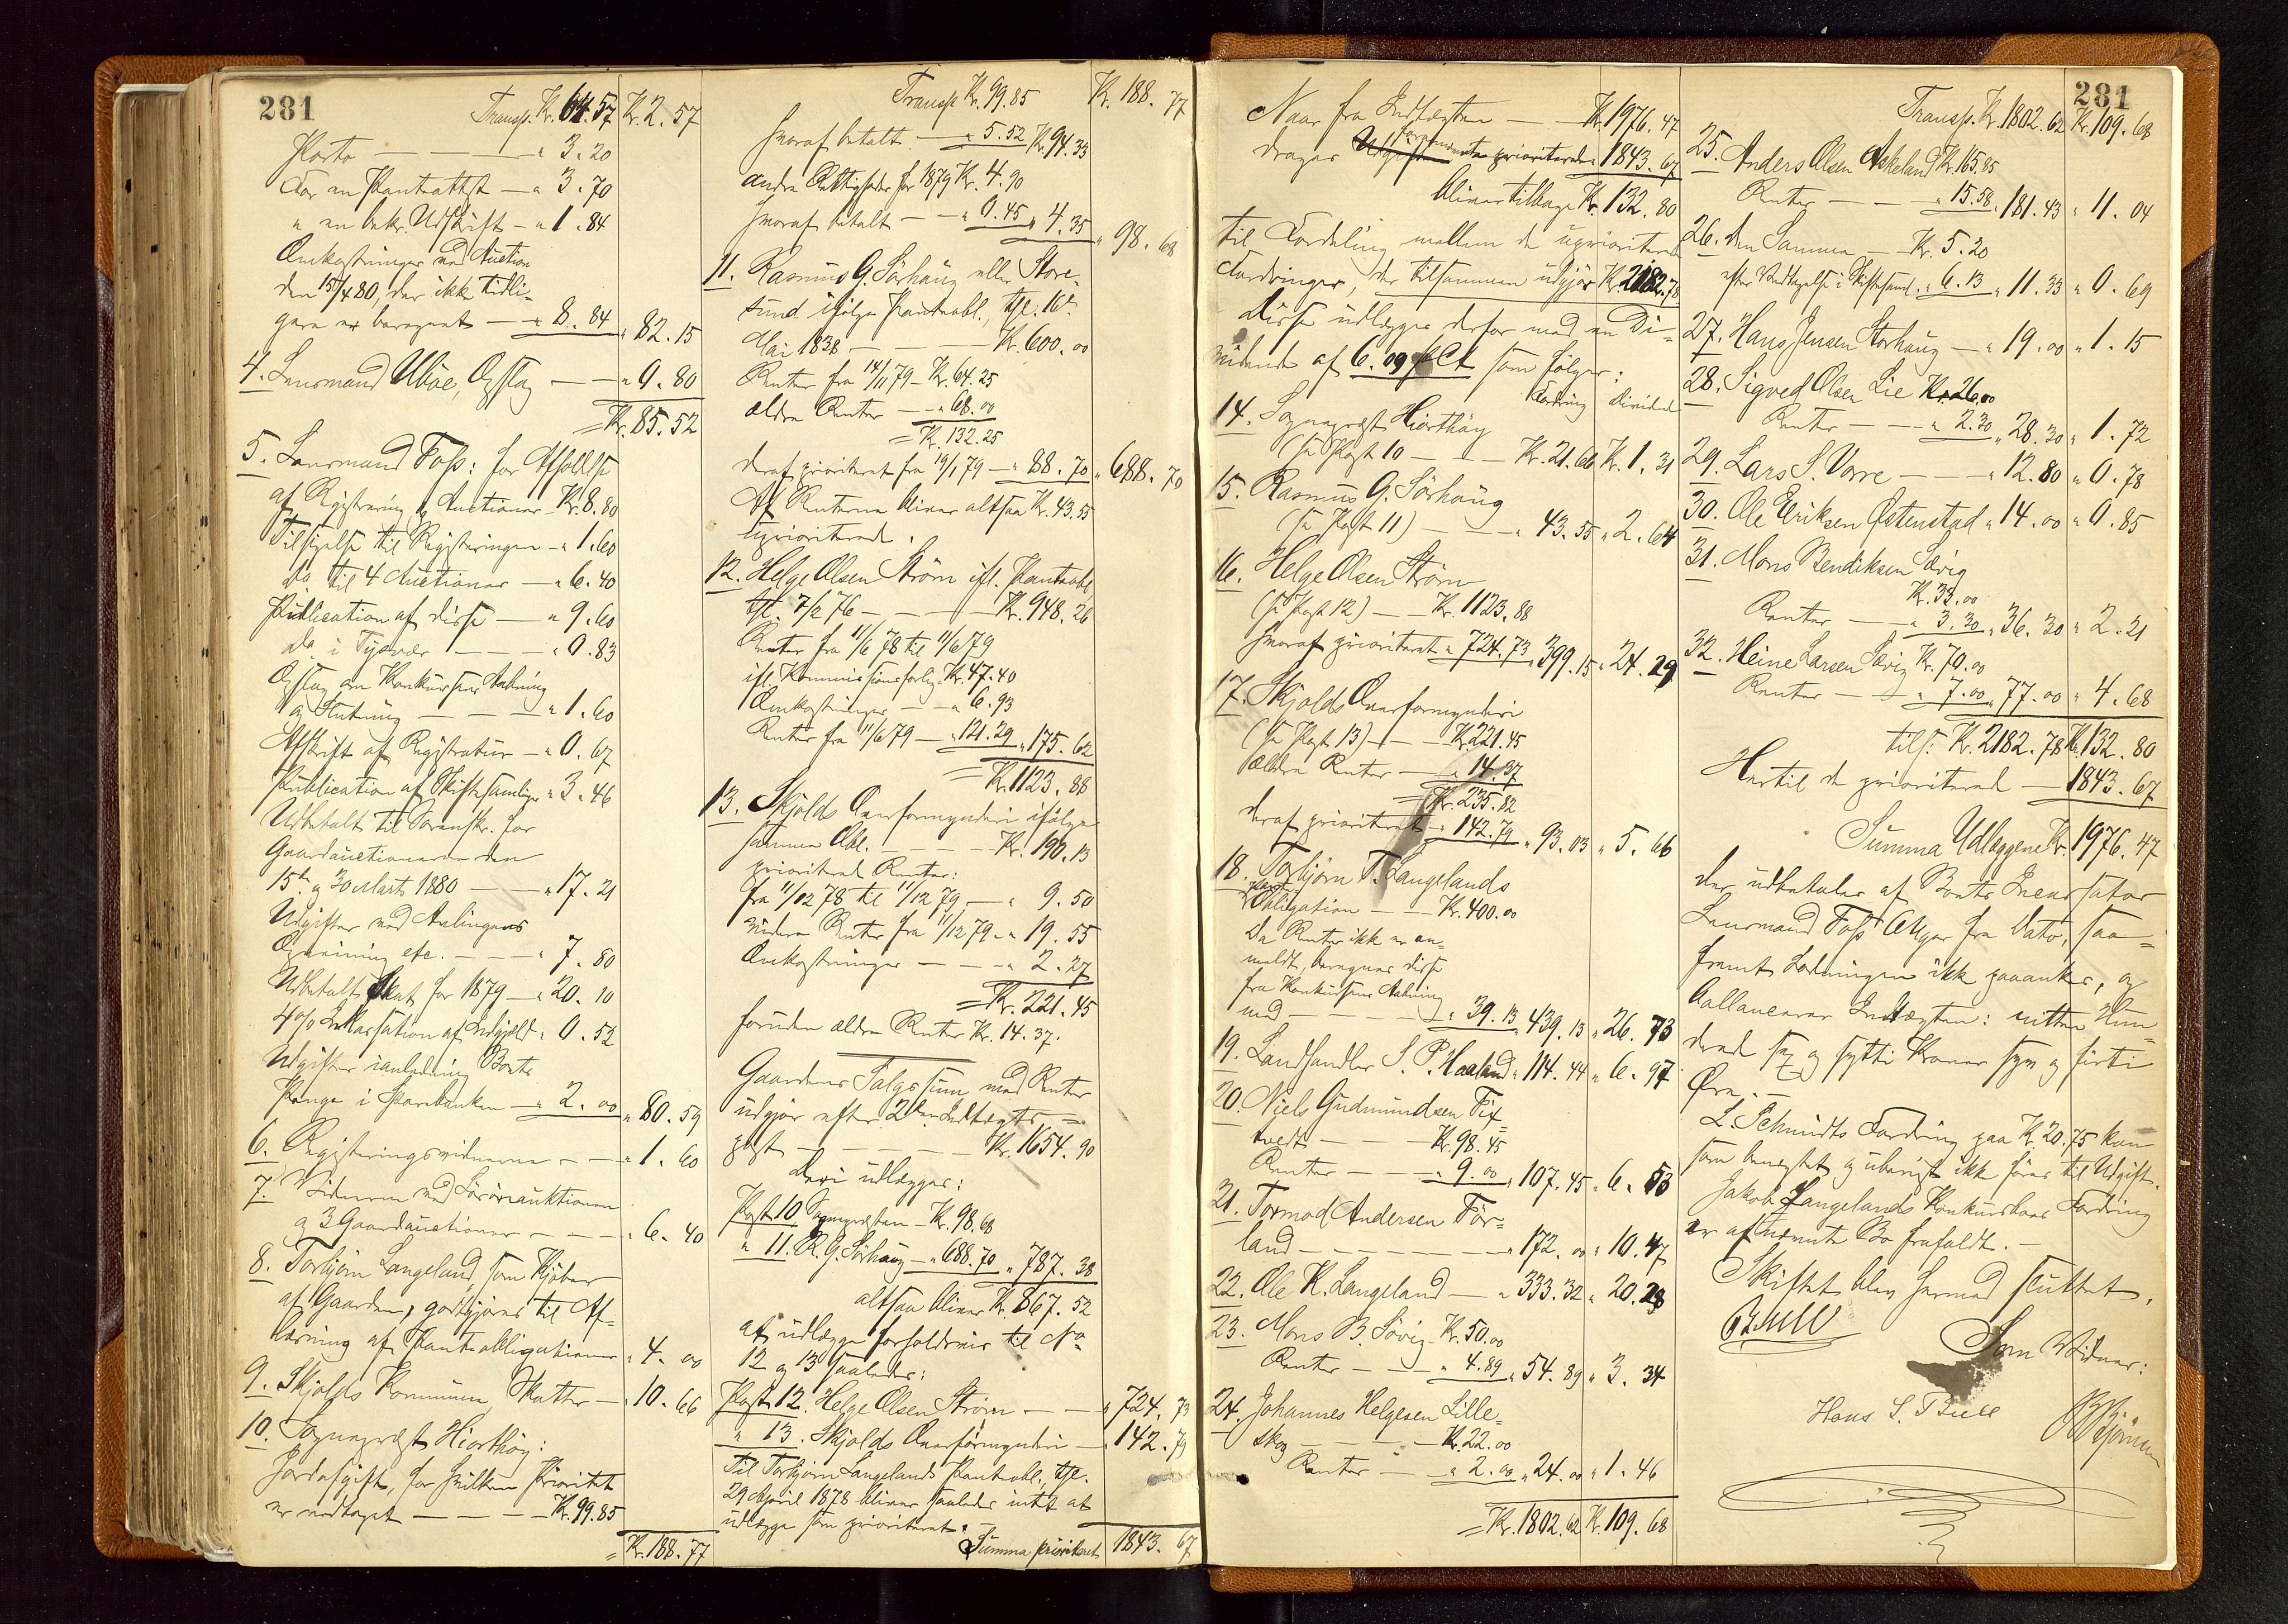 281
Transp. Kr. 64.57 Kr. 2.57
Porto — — — " 3.20
For en Pantattest — " 3.70
" en bekr. Udskrift — " 1.84
Omkostninger ved Auction
den 15/4 80, der ikke tidli-
gere er beregnet — " 8.84 " 82.15
4. Lensmand Uboe, Opslag — — " 0.80
= Kr. 85.52
5. Lensmand Foss: for Afholdelse
af Registrering & Auctioner Kr. 8.80
Tilsigelse til Registeringen — " 1.60
do til 4 Auctioner — " 6.40
Publication af disse — " 9.60
do i Tysvær — — — " 0.83
Opslag om Konkursens Aabning
og Slutning — — — " 1.60
Afskrift af Registratur — " 0.67
Publication af Skiftesamlinger " 3.46
Udbetalt til Sorenskr. for
Gaardauctionerne den
15de og 30 Marts 1880 — — " 17.21
Udgifter ved Avlingens
Opmaaning etc. — — — " 7.80
Udbetalt Skat for 1879 — " 20.10
4% Inkassation af Indgjæld " 0.52
Udgifter i anledning Boets
Penge i Sparebanken — " 2.00 " 80.59
6. Registeringsvidnerne — — " 1.60
7. Vidnerne ved Løsøreauktionen
og 3 Gaardauctioner — — — " 6.40
8. Torbjørn Langeland, som Kjøber
af Gaarden, godtgjøres til Af-
læsning af Panteobligationer " 4.00
9. Skjolds Kommune, Skatter — " 10.66
10. Sogneprest Hiorthøy:
Jordafgift, for hvilken Prioritet
er vedtaget — — — Kr. 99.85
= Kr. 188.77
Transp. Kr. 99.85 Kr. 188.77
hvoraf betalt — " 5.52 Kr. 94.33
andre Rettigheder for 1879 Kr. 4.90
hvoraf betalt — — " 0.45 " 4.35 " 98.68
11. Rasmus G. Sørhaug eller Store-
sund ifølge Panteobl., tgl. 16de
Mai 1838 — — — Kr. 600.00
Renter fra 14/11 79 — Kr. 64.25
ældre Renter — — " 68.00
= Kr. 132.25
deraf prioriteret fra 19/1 79 — " 88.70 " 688.70
Af Renterne bliver altsaa Kr. 43.55
uprioriterede.
12. Helge Olsen Strøm ifl. Panteobl.
tgl. 7/2 76 — — — — Kr. 948.26
Renter fra 11/6 78 til 11/6 79
ifl. Kommissionsforlig Kr. 47.40
Omkostninger — — " 6.93
Renter fra 11/6 79 — " 121.29 " 175.62
= Kr. 1123.88
13. Skjolds Overformynderi ifølge
samme Obl. — — — — Kr. 190.13
prioriterede Renter:
fra 11/12 78 til 11/12 79 — " 9.50
videre Renter fra 11/12 79 — " 19.55
Omkostninger — — — " 2.27
= Kr. 221.45
foruden ældre Renter Kr. 14.37.
Gaardens Salgssum med Renter
udgjør efter 2den Indtægts-
post — — — — — Kr. 1654.90
Deri udlægges:
Post 10 Sognepresten — Kr. 98.68
" 11. R. G. Sørhaug — " 688.70 " 787.38
altsaa bliver Kr. 867.52
at udlægge forholdsvis til No
12 og 13 saaledes:
Post 12. Helge Olsen Strøm — — " 724.73
" 13. Skjolds Overformynderi — " 142.79
Til Torbjørn Langelands Panteobl., tgl.
29 April 1878 bliver saaledes intet at
udlægge som prioriteret. —
Summa prioriteret 1843.67
281
Naar fra Indtægten — — Kr. 1976.47
drages forannævnte prioriterede " 1843.67
bliver tilbage Kr. 132.80
til Fordeling mellem de uprioriterede
Fordringer, der tilsammen udgjør Kr. 2182.78
Disse udlægges derfor med en Di-
vidende af 6.09 pCt som følger:
Fordring Dividende
14. Sogneprest Hiorthøy
(se Post 10 — — — Kr. 21.66 Kr. 1.31
15. Rasmus G. Sørhaug
(se Post 11) — — — " 43.55 " 2.64
16. Helge Olsen Strøm
(se Post 12) — — Kr. 1123.88
hvoraf prioriteret " 724.73 " 399.15 " 24.29
17. Skjolds Overformynderi
(se Post 13) — — Kr. 221.45
ældre Renter — " 14.37
= Kr. 235.82
deraf prioriteret " 142.79 " 93.03 " 5.66
18. Torbjørn T. Langelands
Obligation — — Kr. 400.00
Da Renter ikke er an-
meldt, beregnes disse
fra Konkursens Aabning
med — — — — " 39.13 439.13 " 26.73
19. Landhandler S. P. Haaland " 114.44 " 6.97
20. Niels Gudmundsen Tix-
tvedt — — — Kr. 98.45
Renter — — — " 9.00 " 107.45 " 6.53
21. Tormod Andersen Før-
land — — — — — " 172.00 " 10.47
22. Ole K. Langeland — " 333.32 " 20.28
23. Mons B. Søvig Kr. 50.00
Renter — — " 4.89 " 54.89 " 3.34
24. Johannes Helgesen Lille-
skog — — — — Kr. 22.00
Renter — — " 2.00 " 24.00 " 1.46
= Kr. 1802.62 Kr. 109.68
Transp. Kr. 1802.62 Kr. 109.68
25. Anders Olsen Askeland Kr. 165.85
Renter — — — " 15.58 " 181.43 " 11.04
26. Den Samme — Kr. 5.20
efter Vedtagelse i Skiftesaml. " 6.13 " 11.33 " 0.69
27. Hans Jensen Storhaug — " 19.00 " 1.15
28. Sigved Olsen Lie Kr. 26.00
Renter — — — " 2.30 " 28.30 " 1.72
29. Lars S. Vorre — — — " 12.80 " 0.78
30. Ole Eriksen Østenstad " 14.00 " 0.85
31. Mons Bendiksen Søvig
Kr. 33.00
Renter — — " 3.30 " 36.30 " 2.21
32. Heine Larsen Søvig Kr. 70.00
Renter — — " 7.00 " 77.00 " 4.68
tils: Kr. 2182.78 Kr. 132.80
Hertil de prioriterede — 1843.67
Summa Udlæggene Kr. 1976.47
der udbetales af Boets Incassator
Lensmand Foss 6 Uger fra Dato, saa-
fremt Lodningen ikke paaankes, og
ballancerer Indtægten: nitten Hun-
drede sex og sytti Kroner syv og firti
Øre. —
L. Schmidts Fordring paa Kr. 20.75 kan
som benegtet og ubevist ikke føres til Udgift.
Jakob Langelands Konkursboes Fordring
er af nævnte Bo frafaldt. —
Skiftet blev hermed sluttet.
Bull
Som Vidner:
Hans S. Bull